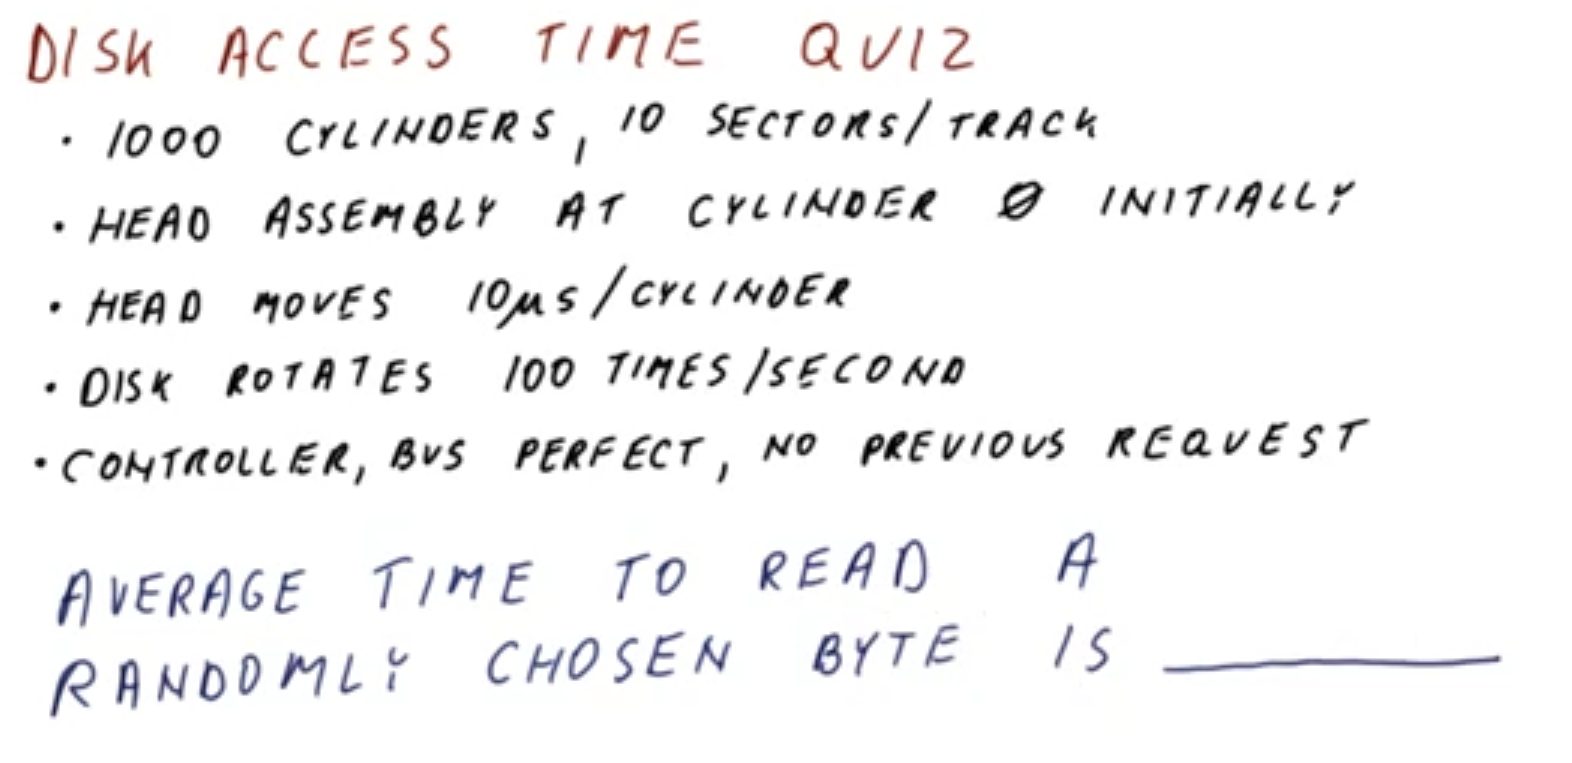 DISK ACCESS TIME QUIZ
• 1000 CYLINDERS, 10 SECTORS/TRACK
• HEAD ASSEMBLY AT CYLINDER 0 INITIALLY
• HEAD MOVES 10μs/CYLINDER
• DISK ROTATES 100 TIMES/SECOND
• CONTROLLER, BUS PERFECT, NO PREVIOUS REQUEST
AVERAGE TIME TO READ A
RANDOMLY CHOSEN BYTE IS ________